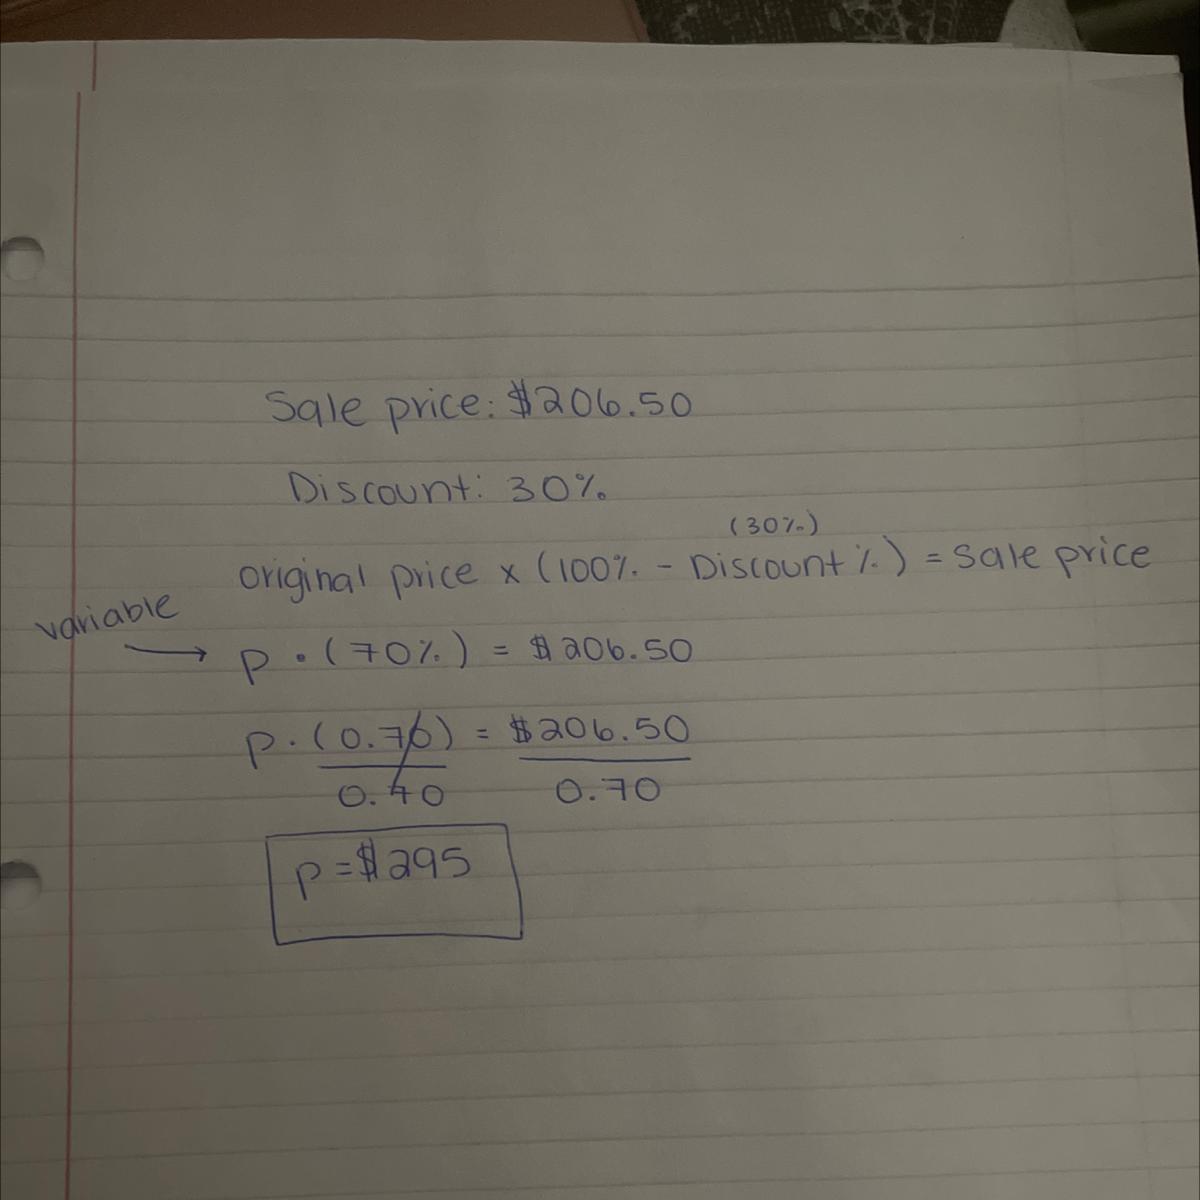 Sale price: $206.50
Discount: 30%
(30%)
original price x (100% - Discount %) = Sale price
variable
→ p • (70%) = $206.50
p • (0.70) = $206.50
0.70 0.70
p = $295